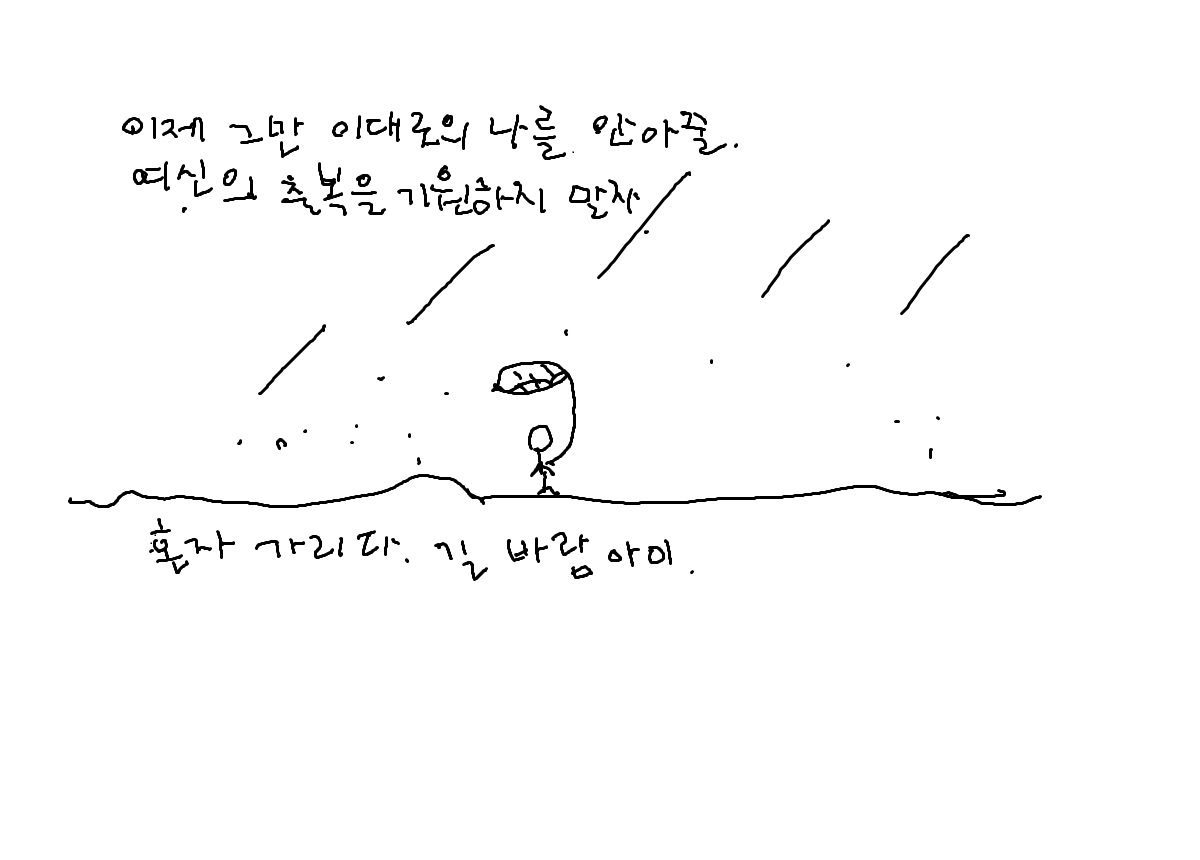 이제 그만 이대로의 나를 안아줄.
여신의 축복을 기원하지 말자
혼자 가리다. 길 바람 아이.